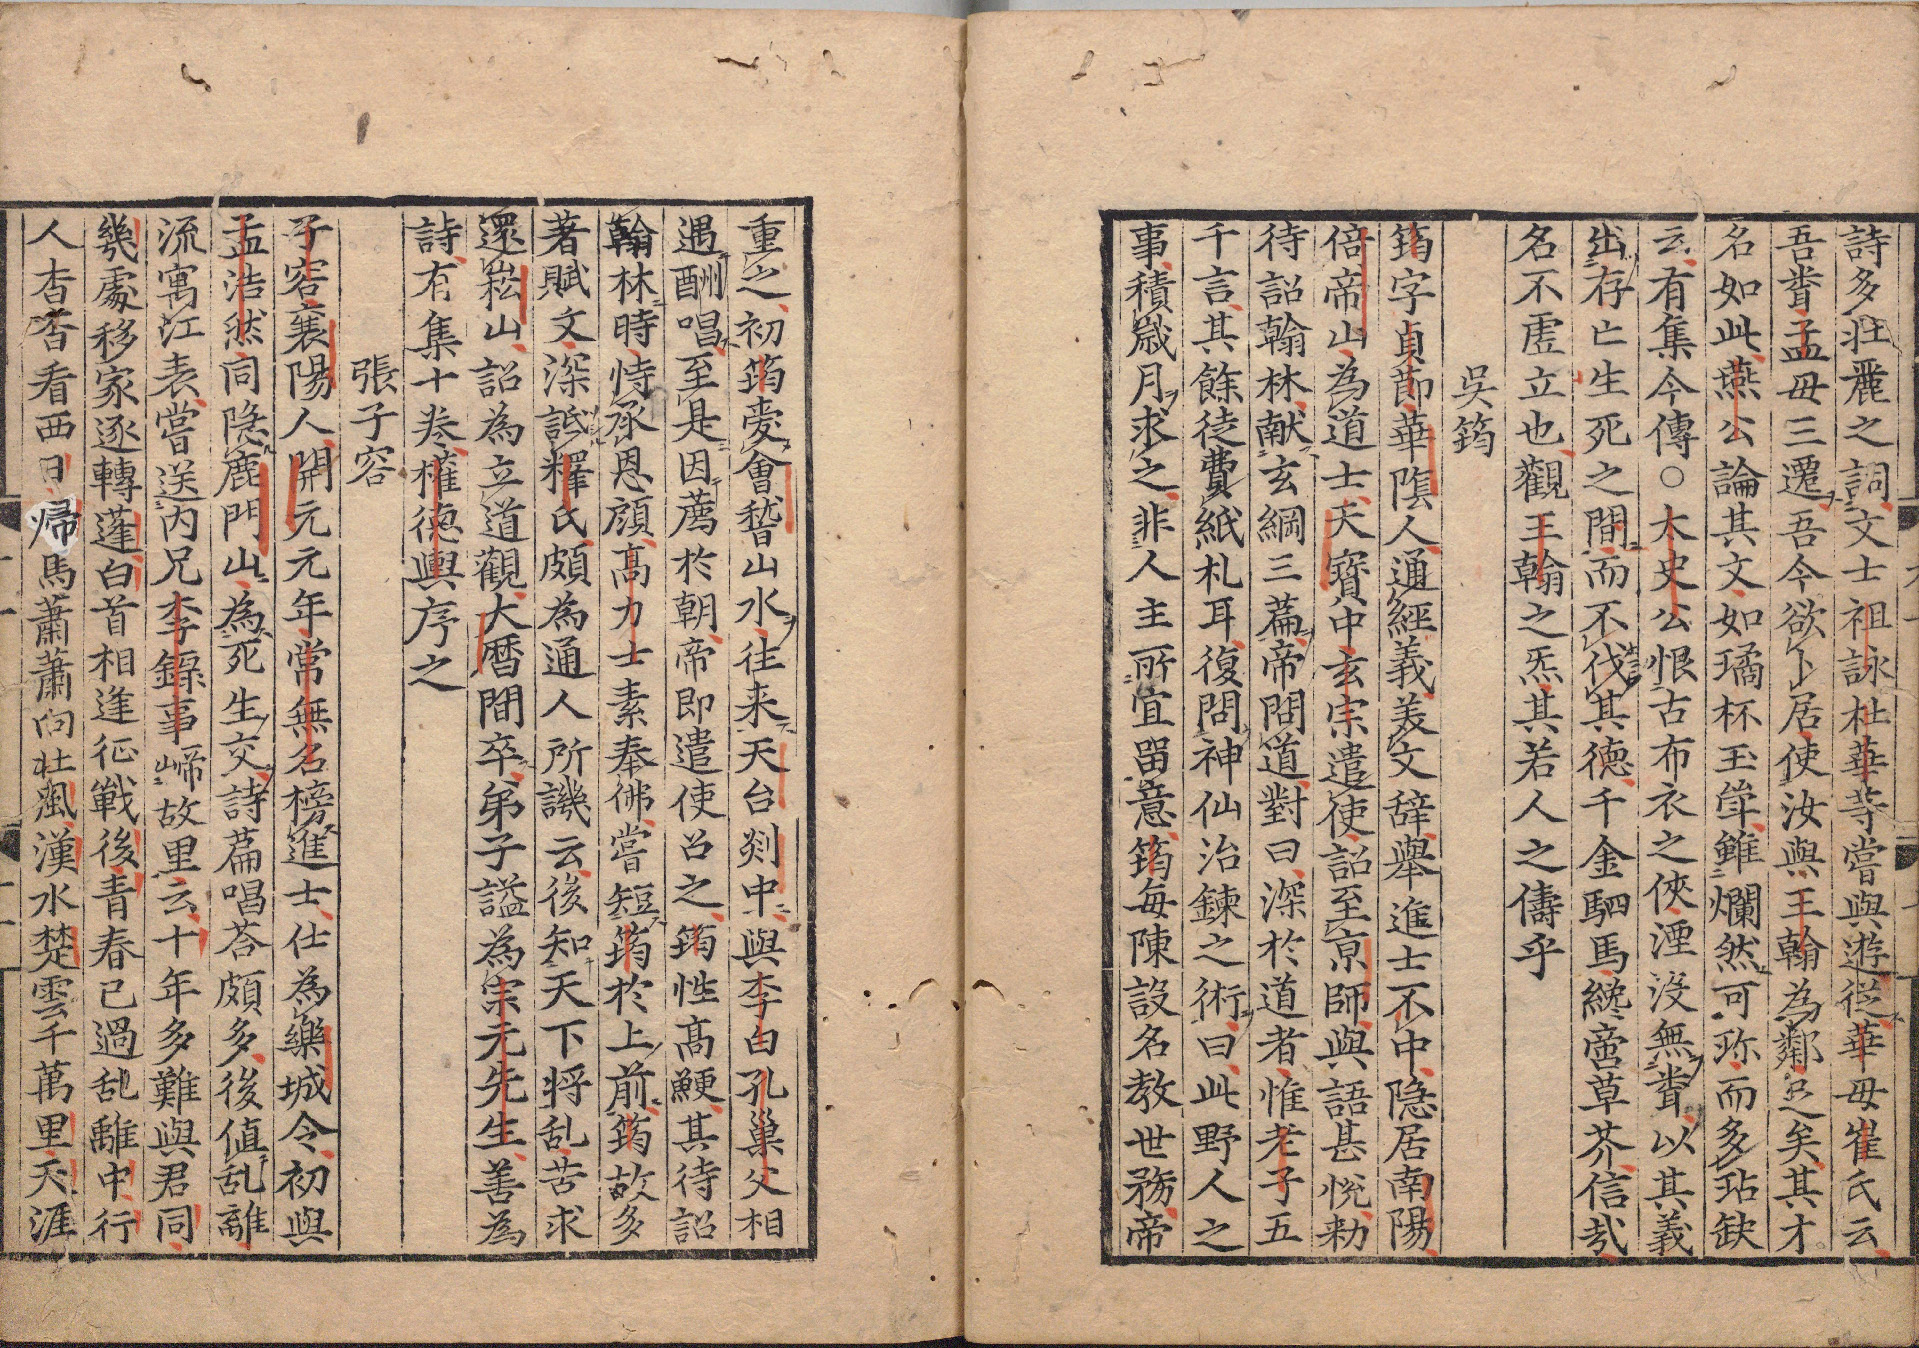 詩多壯麗之詞文士祖詠杜華等嘗與遊從華母崔氏云
吾聞孟母三遷吾今欲卜居使汝與王翰為鄰足矣其才
名如此燕公論其文如璚杯玉斝雖爛然可珎而多玷缺
云有集今傳○太史公恨古布衣之俠湮没無聞以其義
出存亡生死之間而不伐其德千金駟馬纔啻草芥信哉
名不虛立也觀王翰之炁其若人之儔乎
吳筠
筠字貞節華隂人通經義美文辞舉進士不中隐居南陽
倍帝山為道士天寳中玄宗遣使詔至京師與語甚悅勑
待詔翰林献玄綱三篇帝問道對曰深於道者惟老子五
千言其餘徒費紙札耳復問神仙治鍊之術曰此野人之
事積歲月求之非人主所宜留意筠每陳設名教世務帝
重之初筠愛會稽山水往来天台剡中與李白孔巢父相
遇酬唱至是因薦於朝帝即遣使召之筠性高鯁其待詔
翰林時恃承恩顔高力士素奉佛嘗短筠於上前筠故多
著賦文深詆釋氏頗為通人所譏云後知天下将乱苦求
還嵩山詔為立道觀大曆間卒弟子謚為宗元先生善為
詩有集十卷權德輿序之
張子容
子容襄陽人開元元年常無名榜進士仕為樂城令初與
孟浩然同隐鹿門山為死生交詩篇唱荅頗多後值乱離
流寓江表嘗送内兄李錄事歸故里云十年多難與君同
幾處移家逐轉蓬白首相逢征戰後青春已過乱離中行
人杳杳看西日帰馬蕭蕭向北風漢水楚雲千萬里天涯